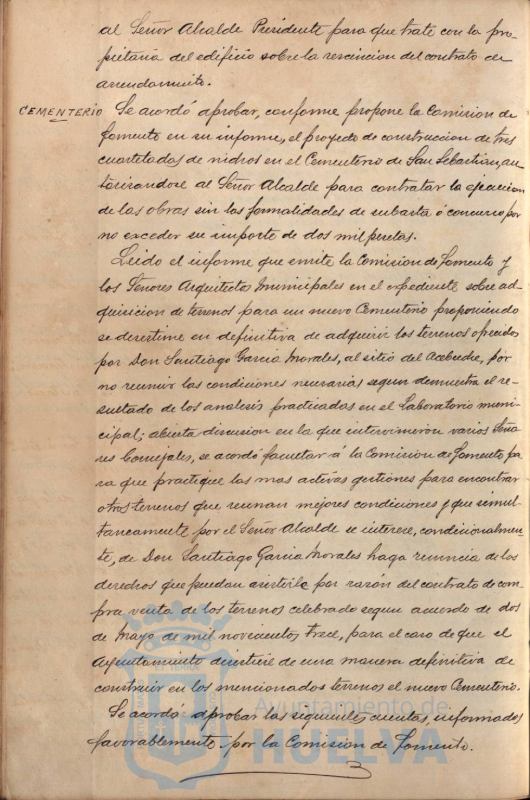 al Señor Alcalde Presidente para que trate con la pro-
pietaria del edificio sobre la rescincion del contrato de
arrendamiento.
CEMENTERIO Se acordó aprobar, conforme propone la Comision de
Fomento en su informe, el proyecto de construccion de tres
cuarteladas de nichos en el Cementerio de San Sebastian, au-
torizandose al Señor Alcalde para contratar la ejecucion
de las obras sin las formalidades de subasta ó concurso por
no exceder su importe de dos mil pesetas.
Leido el informe que emite la Comision de Fomento y
los Señores Arquitectos municipales en el expediente sobre ad-
quisicion de terrenos para un nuevo Cementerio proponiendo
se desestime en definitiva de adquirir los terrenos ofrecidos
por Don Santiago Garcia Morales, al sitio del Acebuche, por
no reunir las condiciones necesarias segun demuestra el re-
sultado de los analisis practicados en el Laboratorio muni-
cipal; abierta discusion en la que intervinieron varios Seño-
res Concejales, se acordó facultar á la Comision de Fomento pa
ra que practique las mas activas gestiones para encontrar
otros terrenos que reunan mejores condiciones y que simul-
taneamente por el Señor Alcalde se interese, condicionalmen-
te, de Don Santiago Garcia Morales haga renuncia de los
derechos que puedan asistirle por razón del contrato de com-
pra venta de los terrenos celebrado segun acuerdo de dos
de Mayo de mil novecientos trece, para el caso de que el
Ayuntamiento desistiese de una manera definitiva de
construir en los mencionados terrenos el nuevo Cementerio.
Se acordó aprobar las siguientes cuentas, informadas
favorablemente por la Comision de Fomento.
Ayuntamiento de
HUELVA